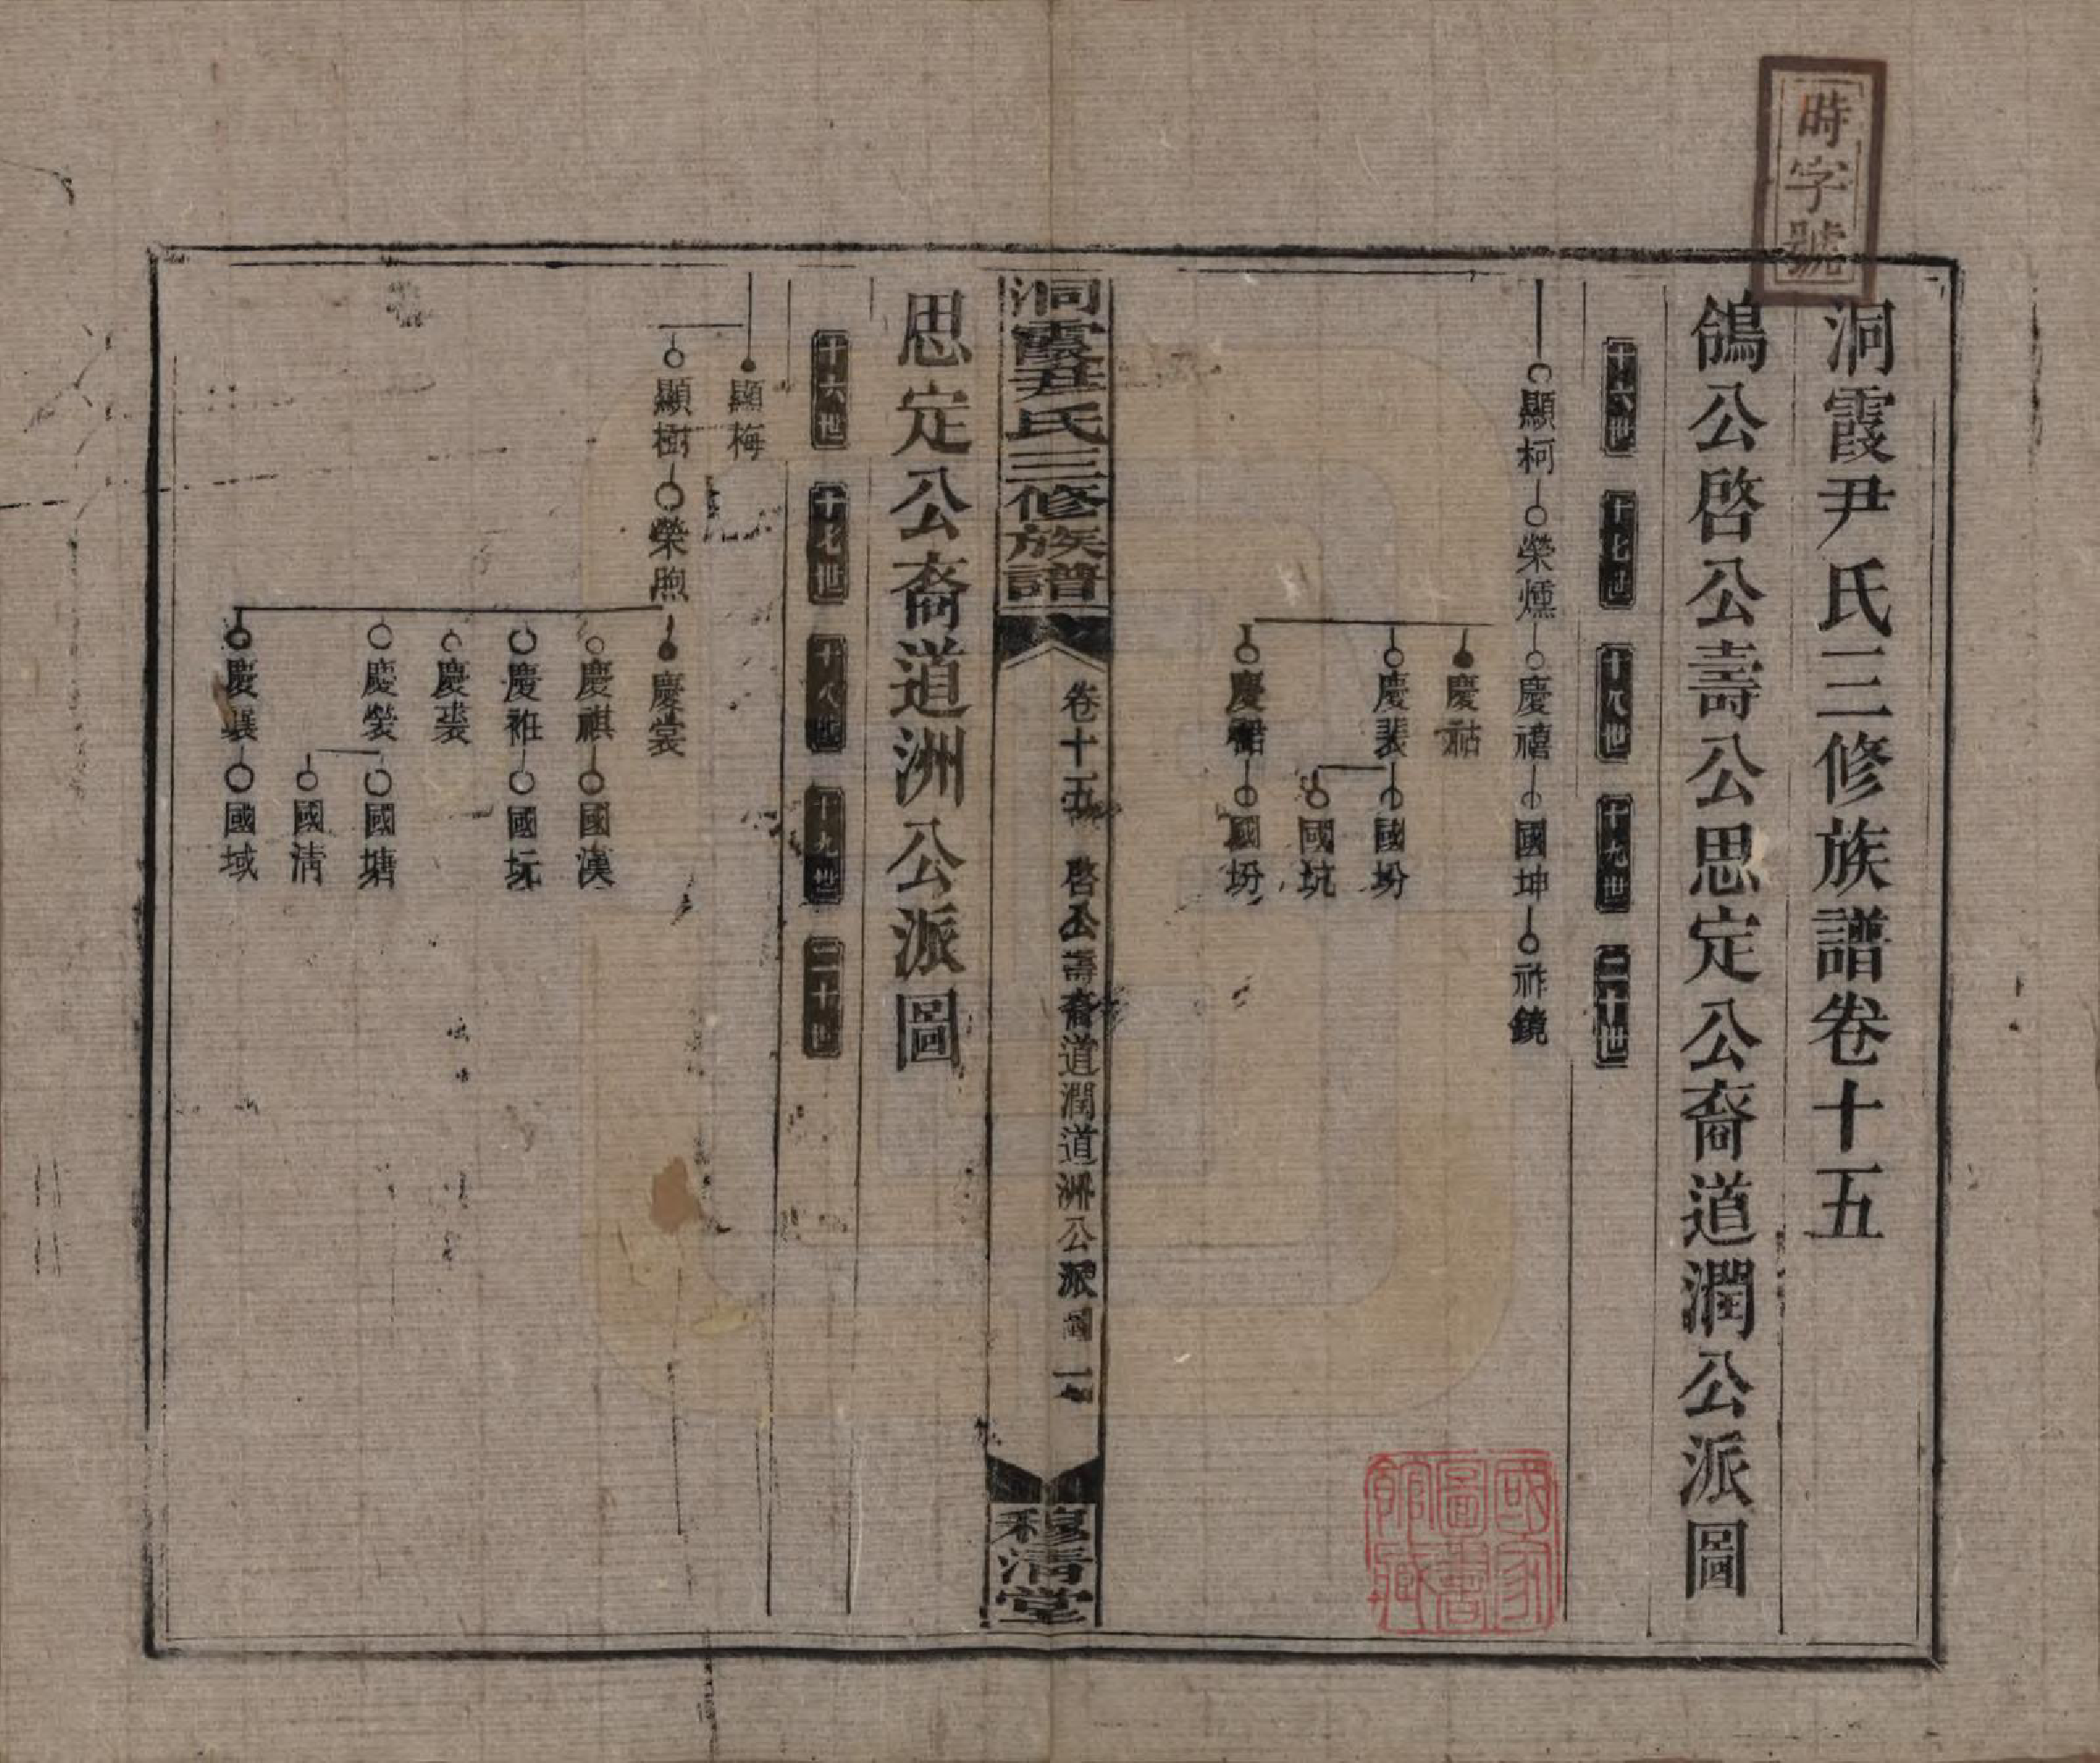 時字號
洞霞尹氏三修族譜卷十五
鴿公啓公壽公思定公裔道潤公派圖
十六世 十七世 十八世 十九世 二十世
顯柯 榮燻 慶禧 國坤 祚鏡
慶祜
慶裴 國坋
國坑
慶 國坋
國家圖書館藏
洞霞尹氏三修族譜 卷十五 啓公壽裔道潤道洲公派圖 一 穆清堂
思定公裔道洲公派圖
十六世 十七世 十八世 十九世 二十世
顯梅
顯樹 榮煦 慶裳
慶祺 國漢
慶 國坃
慶裘
慶裝 國塘
國清
慶襄 國域